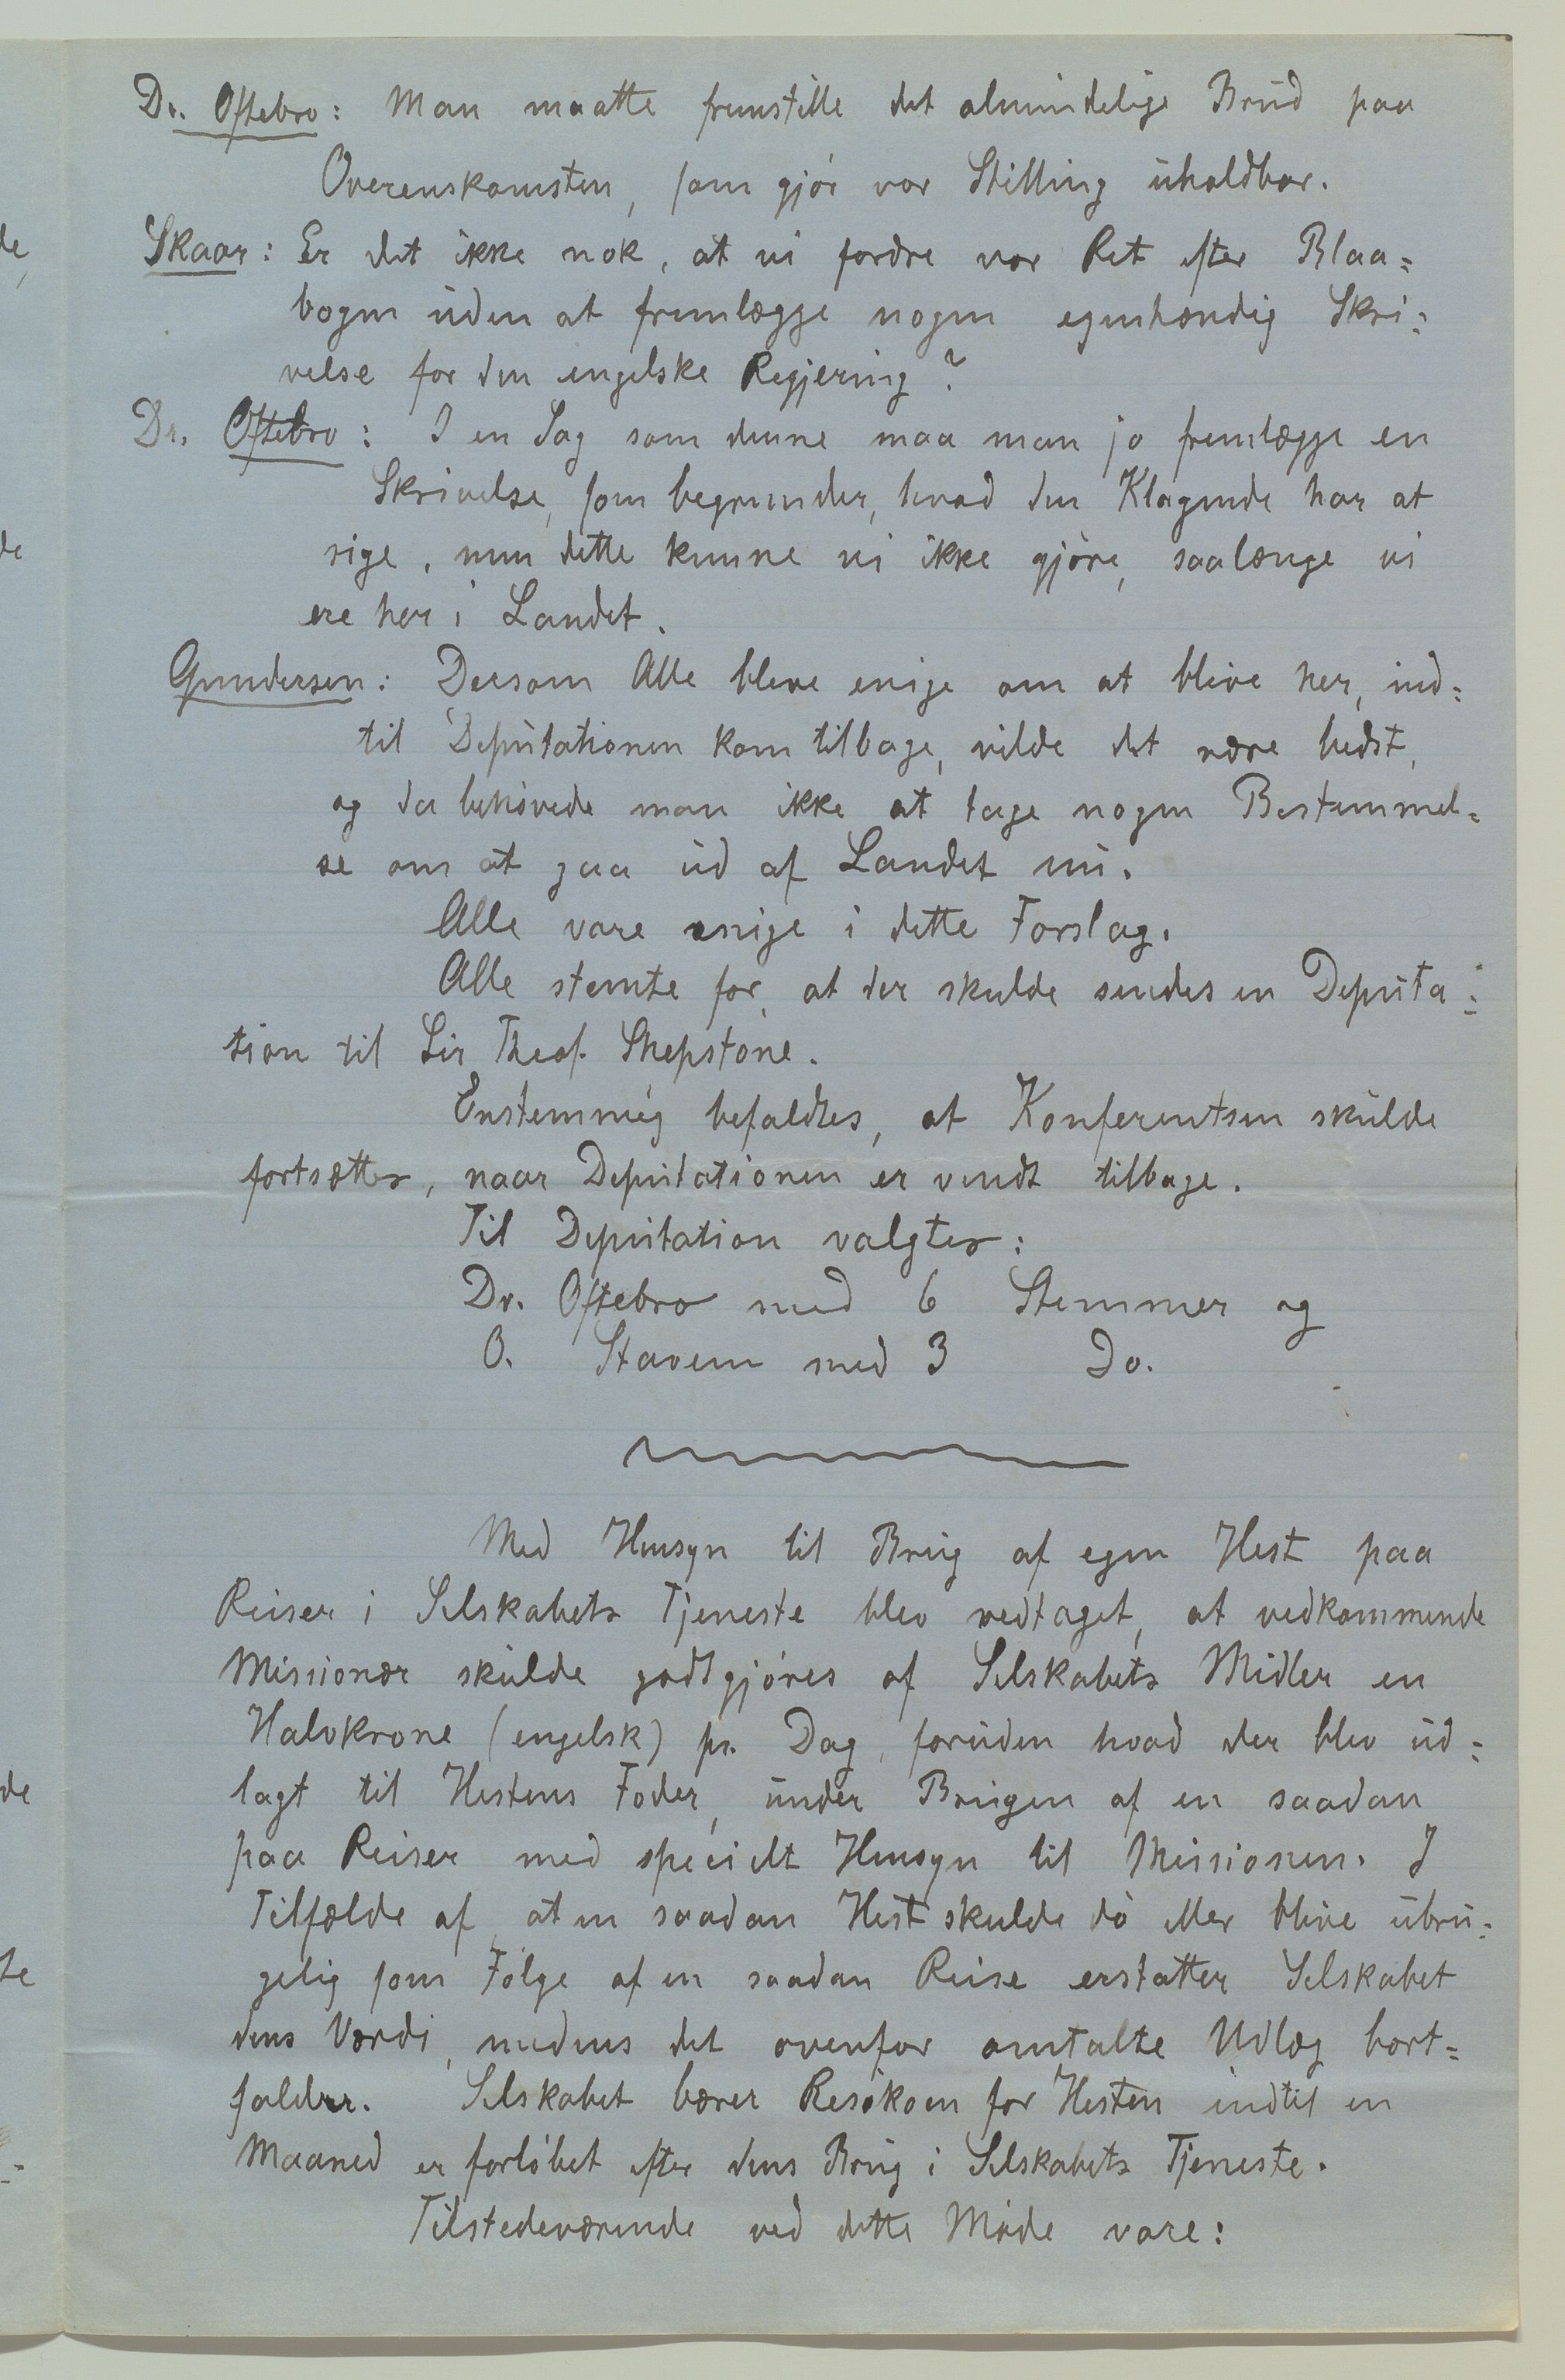 Dr. Oftebro: Man maatte fremstille det almindelige Brud paa
Overenskomsten, som gjör vor Stilling uholdbar.
Skaar: Er det ikke nok, at vi fordre vor Ret efter Blaa=
bogen uden at fremlægge nogen egenhændig Skri=
velse for den engelske Regjering?
Dr. Oftebro: I en Sag som denne maa man jo fremlægge en
Skrivelse, som begrunder, hvad den Klagende har at
sige, men dette kunne vi ikke gjöre, saalænge vi
ere her i Landet.
Gundersen: Dersom Alle bleve enige om at blive her, ind=
til Deputationen kom tilbage, vilde det være bedst,
og da behövede man ikke at tage nogen Bestemmel=
se om at gaa ud af Landet nu.
Alle vare enige i dette Forslag.
Alle stemte for, at der skulde sendes en Deputa=
tion til Sir Theof. Shepstone.
Enstemmig befaldtes, at Konferentsen skulde
fortsættes, naar Deputationen er vendt tilbage.
Til Deputation valgtes:
Dr. Oftebro med 6 Stemmer og
O. Stavem med 3 Do.
Med Hensyn til Brug af egen Hest paa
Reiser i Selskabets Tjeneste blev vedtaget, at vedkommende
Missionær skulde godtgjöres af Selskabets Midler en
Halvkrone (engelsk) pr. Dag, foruden hvad der blev ud=
lagt til Hestens Foder, under Brugen af en saadan
paa Reiser med specielt Hensyn til Missionen. I
Tilfælde af, at en saadan Hest skulde dö eller blive ubru=
gelig som Fölge af en saadan Reise erstatter Selskabet
dens Værdi, medens det ovenfor omtalte Udlæg bort=
falder. Selskabet bærer Resikoen for Hesten indtil en
Maaned er forlöbet efter dens Brug i Selskabets Tjeneste.
Tilstedeværende ved dette Möde vare: